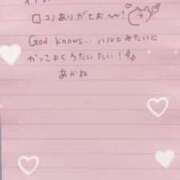 口コミありがとお〜!
God knows... ハルヒみたいに
かっこよくうたいたい!
あかね